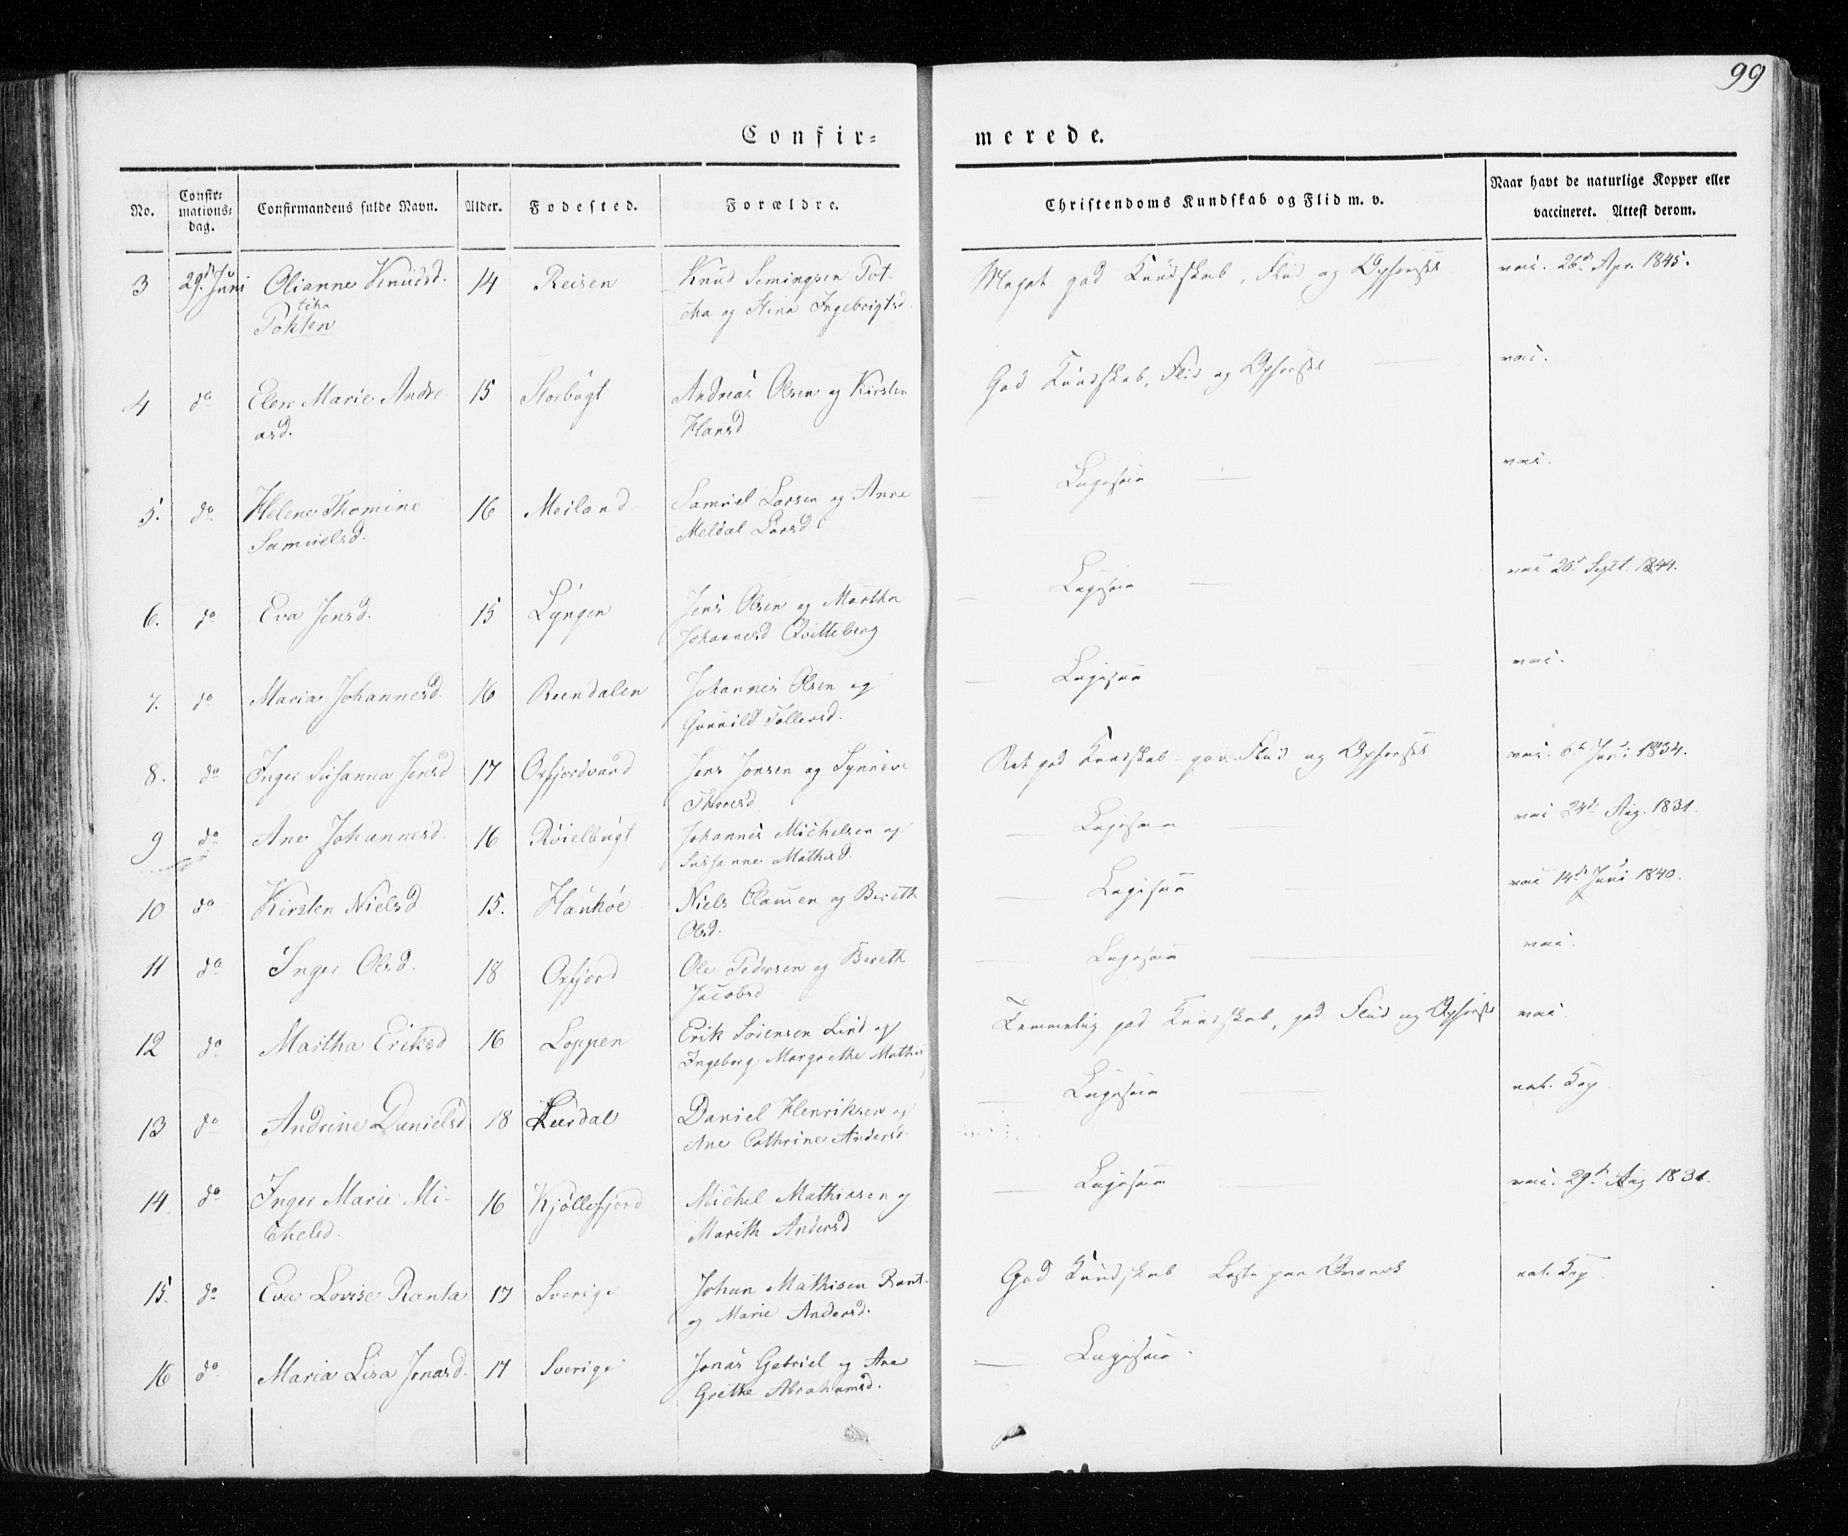 99
Confir= merede.
No. Confir=mations=dag. Confirmandens fulde Navn. Alder. Fodested. Forældre. Christendoms Kundskab og Flid m. v. Naar havt de naturlige Kopper eller vaccineret. Attest derom.
3 29d Juni Olianne Knudsd. 14 Reisen Knud Semingsen Tot- Meget god Kundskab, Flid og Opførsel vac. 26de Apr. 1845.
tika cka og Stina Ingebrigtsd.
4 do Elen Marie Andre 15 Storbugt Andreas Olsen og Kirsten God Kundskab, Flid og Opførsel vac.
asd. Hansd
5. do Helene Thomine 16 Meiland Samuel Larsen og Anne — Ligesaa — vac.
Samuelsd. Meldal Larsd
6. do Eva Jensd. 15 Lyngen Jens Olsen og Martha — Ligesaa — vac 20de Sept. 1844.
Johannesd Qvitteberg
7. do Maria Johannesd. 16 Reendalen Johannes Olsen og — Ligesaa — vac.
Gunnild Tollersd.
8. do Inger Susanna Jensd 17 Oxfjordvand Jens Jonsen og Synneve Ret god Kundskab, god Flid og Opførsel vac. 6te Juni 1834.
Thoresd
9 do Ane Johannesd. 16 Røielbugt Johannes Michelsen og — Ligesaa — vac 24de Aug. 1831.
Susanne Mathisd.
10 do Kirsten Nielsd 15. Haukøe Niels Clausen og Bereth — Ligesaa — vac 14de Juni 1840.
Olsd.
11 do Inger Olsd. 18 Oxfjord Ole Pedersen og Bereth — Ligesaa — vac.
Jacobsd
12 do Martha Eriksd 16 Loppen Erik Sørensen Lind og Temmelig god Kundskab, god Flid og Opførsel vac.
Ingeborg Margrethe Mathis
13 do Andrine Danielsd 18 Leerdal Daniel Henriksen og — Ligesaa — nat. Kop.
Ane Cathrine Andersd.
14. do Inger Marie Mi- 16 Kjøllefjord Michel Mathissen og — Ligesaa — vac. 29de Aug 1831.
chelsd. Marith Andersd
15. do Eva Lovise Ranta 17 Sverige Johan Mathisen Rant God Kundskab Læste paa Qvænsk nat. Kop
og Marie Andersd.
16 do Maria Lisa Jonasd. 17 Sverige Jonas Gabriel og Ane — Ligesaa.
Grethe Abrahamsd.